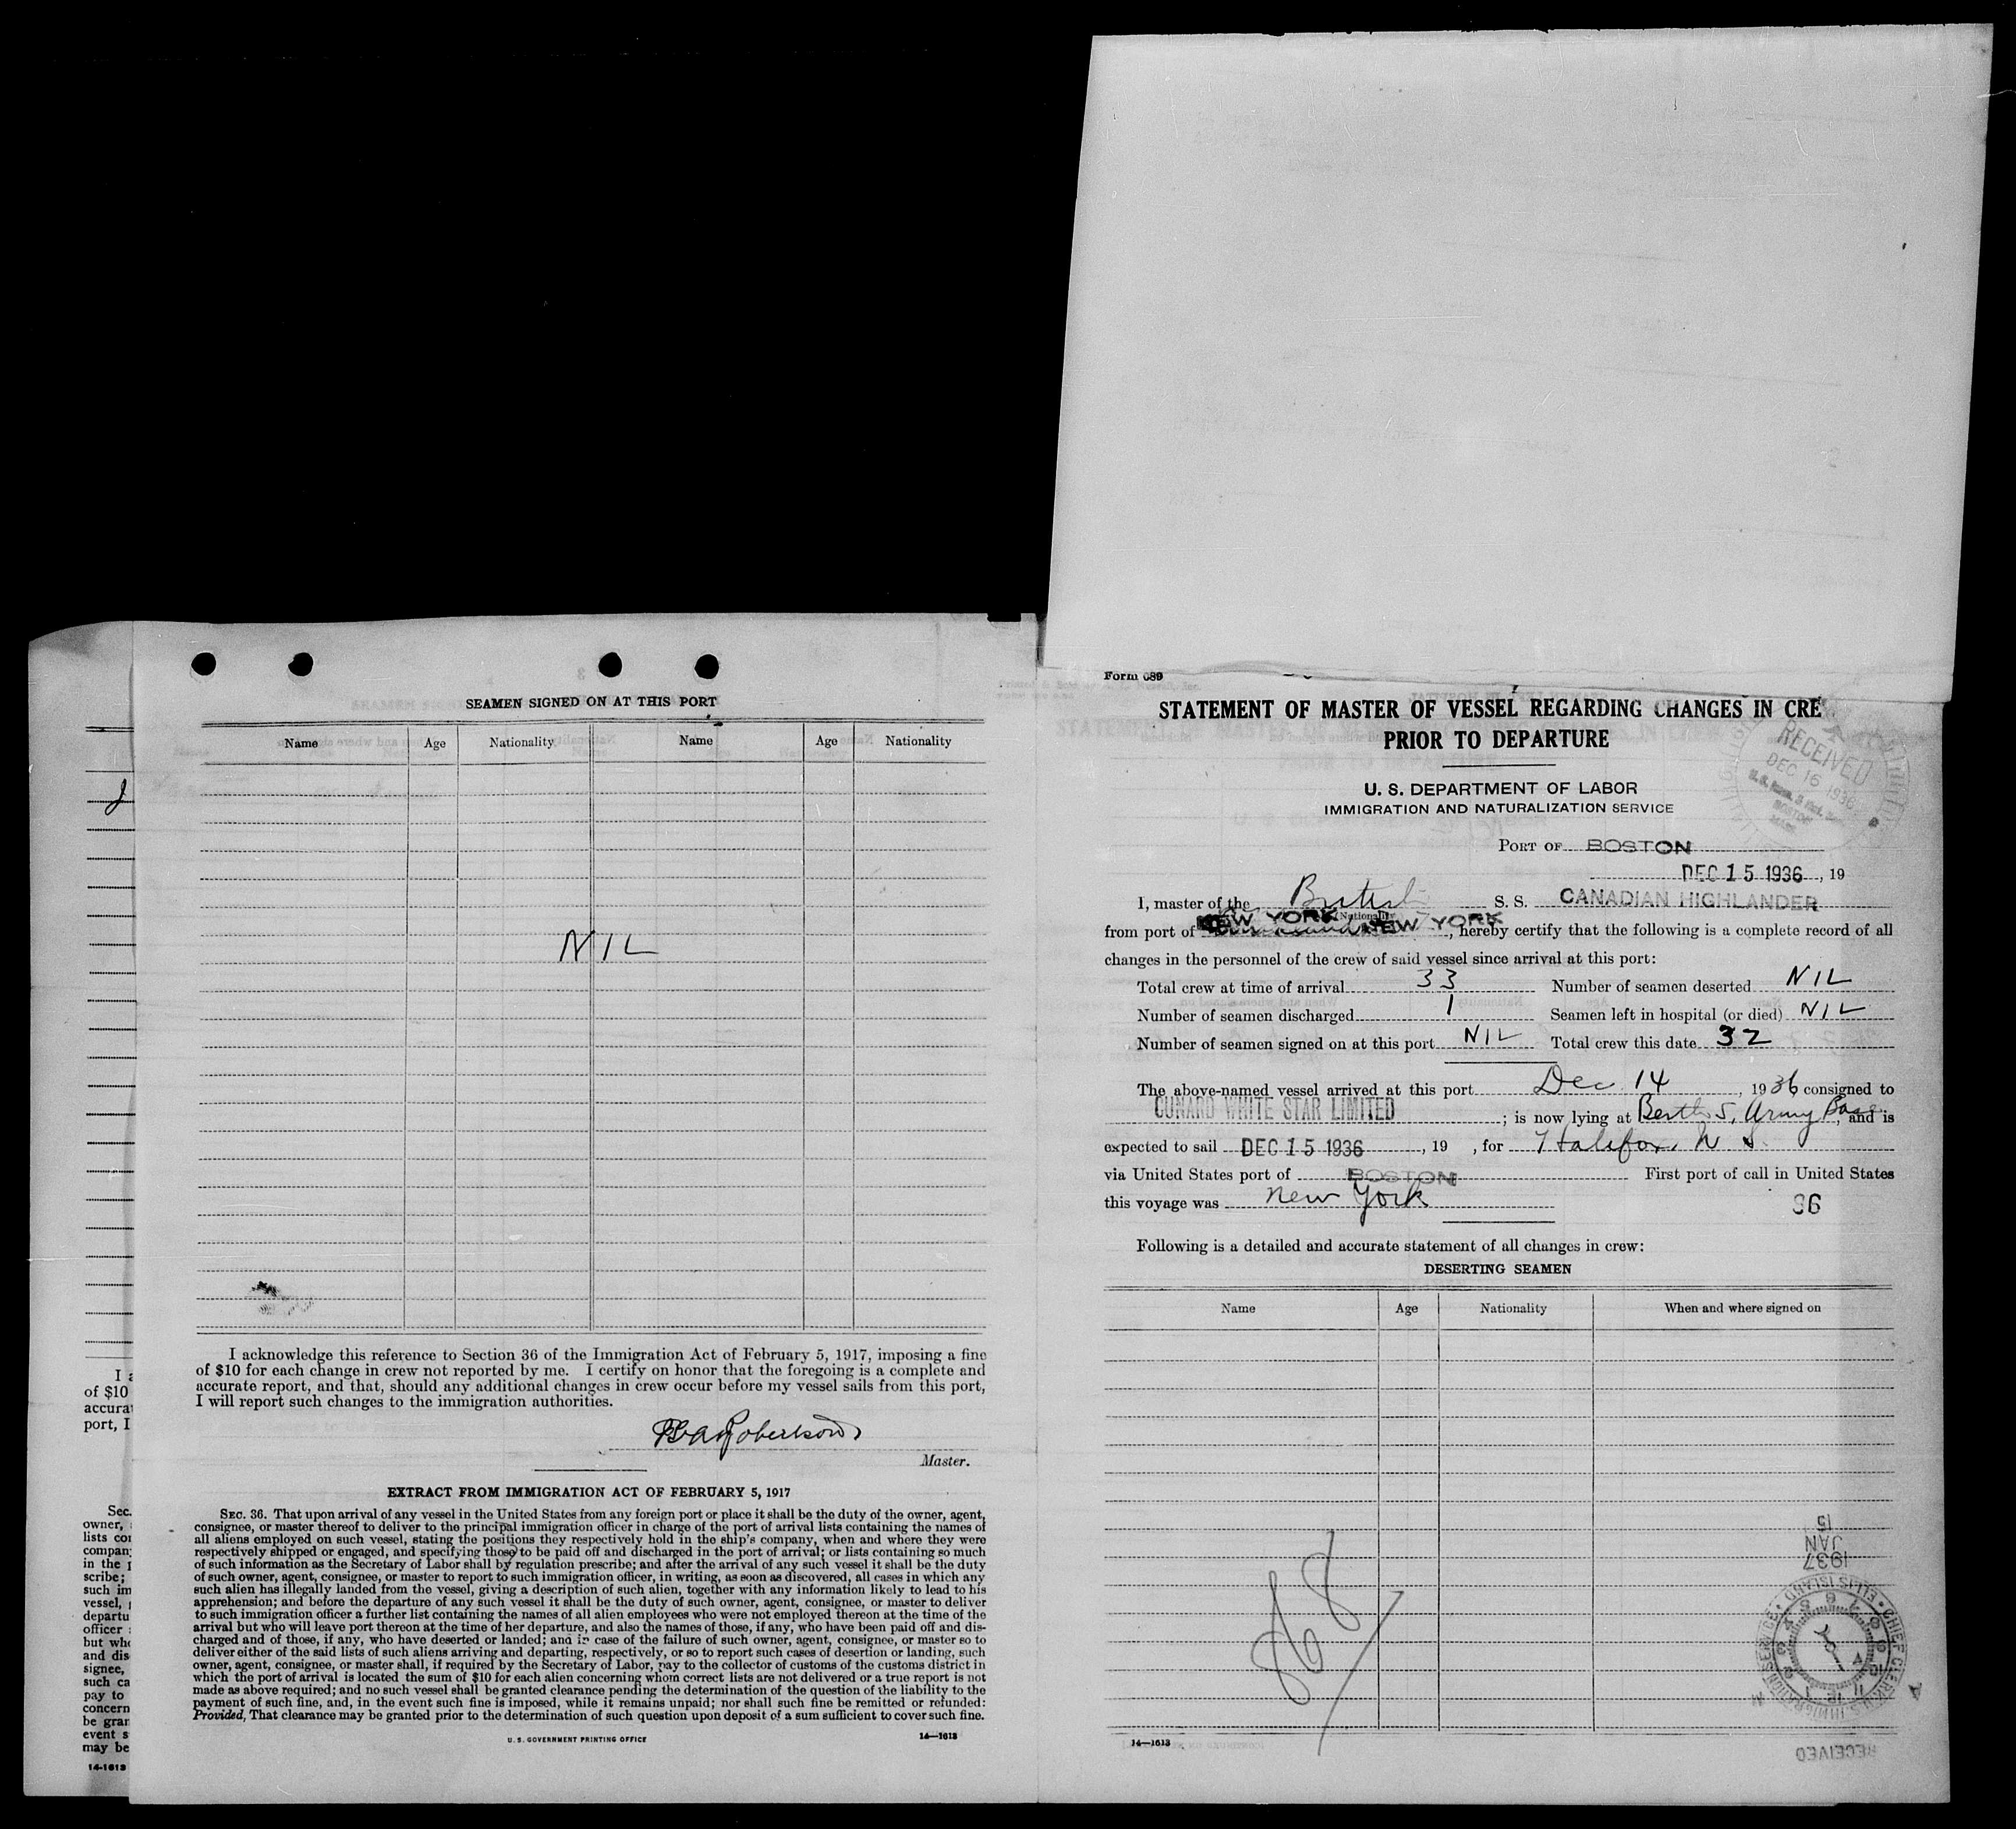 SEAMEN SIGNED ON AT THIS PORT
Name Age Nationality Name Age Nationality
NIL
I acknowledge this reference to Section 36 of the Immigration Act of February 5, 1917, imposing a fine
of $10 for each change in crew not reported by me. I certify on honor that the foregoing is a complete and
accurate report, and that, should any additional changes in crew occur before my vessel sails from this port,
I will report such changes to the immigration authorities.
Robertson
Master.
EXTRACT FROM IMMIGRATION ACT OF FEBRUARY 5, 1917
SEC. 36. That upon arrival of any vessel in the United States from any foreign port or place it shall be the duty of the owner, agent,
consignee, or master thereof to deliver to the principal immigration officer in charge of the port of arrival lists containing the names of
all aliens employed on such vessel, stating the positions they respectively hold in the ship's company, when and where they were
respectively shipped or engaged, and specifying those to be paid off and discharged in the port of arrival; or lists containing so much
of such information as the Secretary of Labor shall by regulation prescribe; and after the arrival of any such vessel it shall be the duty
of such owner, agent, consignee, or master to report to such immigration officer, in writing, as soon as discovered, all cases in which any
such alien has illegally landed from the vessel, giving a description of such alien, together with any information likely to lead to his
apprehension; and before the departure of any such vessel it shall be the duty of such owner, agent, consignee, or master to deliver
to such immigration officer a further list containing the names of all alien employees who were not employed thereon at the time of the
arrival but who will leave port thereon at the time of her departure, and also the names of those, if any, who have been paid off and dis-
charged and of those, if any, who have deserted or landed; and in case of the failure of such owner, agent, consignee, or master so to
deliver either of the said lists of such aliens arriving and departing, respectively, or so to report such cases of desertion or landing, such
owner, agent, consignee, or master shall, if required by the Secretary of Labor, pay to the collector of customs of the customs district in
which the port of arrival is located the sum of $10 for each alien concerning whom correct lists are not delivered or a true report is not
made as above required; and no such vessel shall be granted clearance pending the determination of the question of the liability to the
payment of such fine, and, in the event such fine is imposed, while it remains unpaid; nor shall such fine be remitted or refunded:
Provided, That clearance may be granted prior to the determination of such question upon deposit of a sum sufficient to cover such fine.
U. S. GOVERNMENT PRINTING OFFICE 14—1613
I a
of $10
accurat
port, I
Sec.
owner,
lists con
company
in the p
scribe;
such im
vessel,
departu
officer
but who
and dis
signee,
such ca
pay to
concern
be gran
event s
may be
14-1613
Form 689
STATEMENT OF MASTER OF VESSEL REGARDING CHANGES IN CRE
PRIOR TO DEPARTURE
U. S. DEPARTMENT OF LABOR
IMMIGRATION AND NATURALIZATION SERVICE
RECEIVED
DEC 16 1936
BOSTON
MASS
PORT OF BOSTON
DEC 15 1936, 19
I, master of the British S. S. CANADIAN HIGHLANDER
(Nationality)
from port of NEW YORK NEW YORK, hereby certify that the following is a complete record of all
changes in the personnel of the crew of said vessel since arrival at this port:
Total crew at time of arrival 33 Number of seamen deserted NIL
Number of seamen discharged 1 Seamen left in hospital (or died) NIL
Number of seamen signed on at this port NIL Total crew this date 32
The above-named vessel arrived at this port Dec 14, 1936 consigned to
CUNARD WHITE STAR LIMITED; is now lying at Berth 5, Army Base, and is
expected to sail DEC 15 1936, 19 , for Halifax, N S.
via United States port of BOSTON First port of call in United States
this voyage was New York
96
Following is a detailed and accurate statement of all changes in crew:
DESERTING SEAMEN
Name Age Nationality When and where signed on
868
15
JAN
1937
CHIEF CLERK U.S. IMMIGRATION SERVICE ELLIS ISLAND
RECEIVED
14—1613